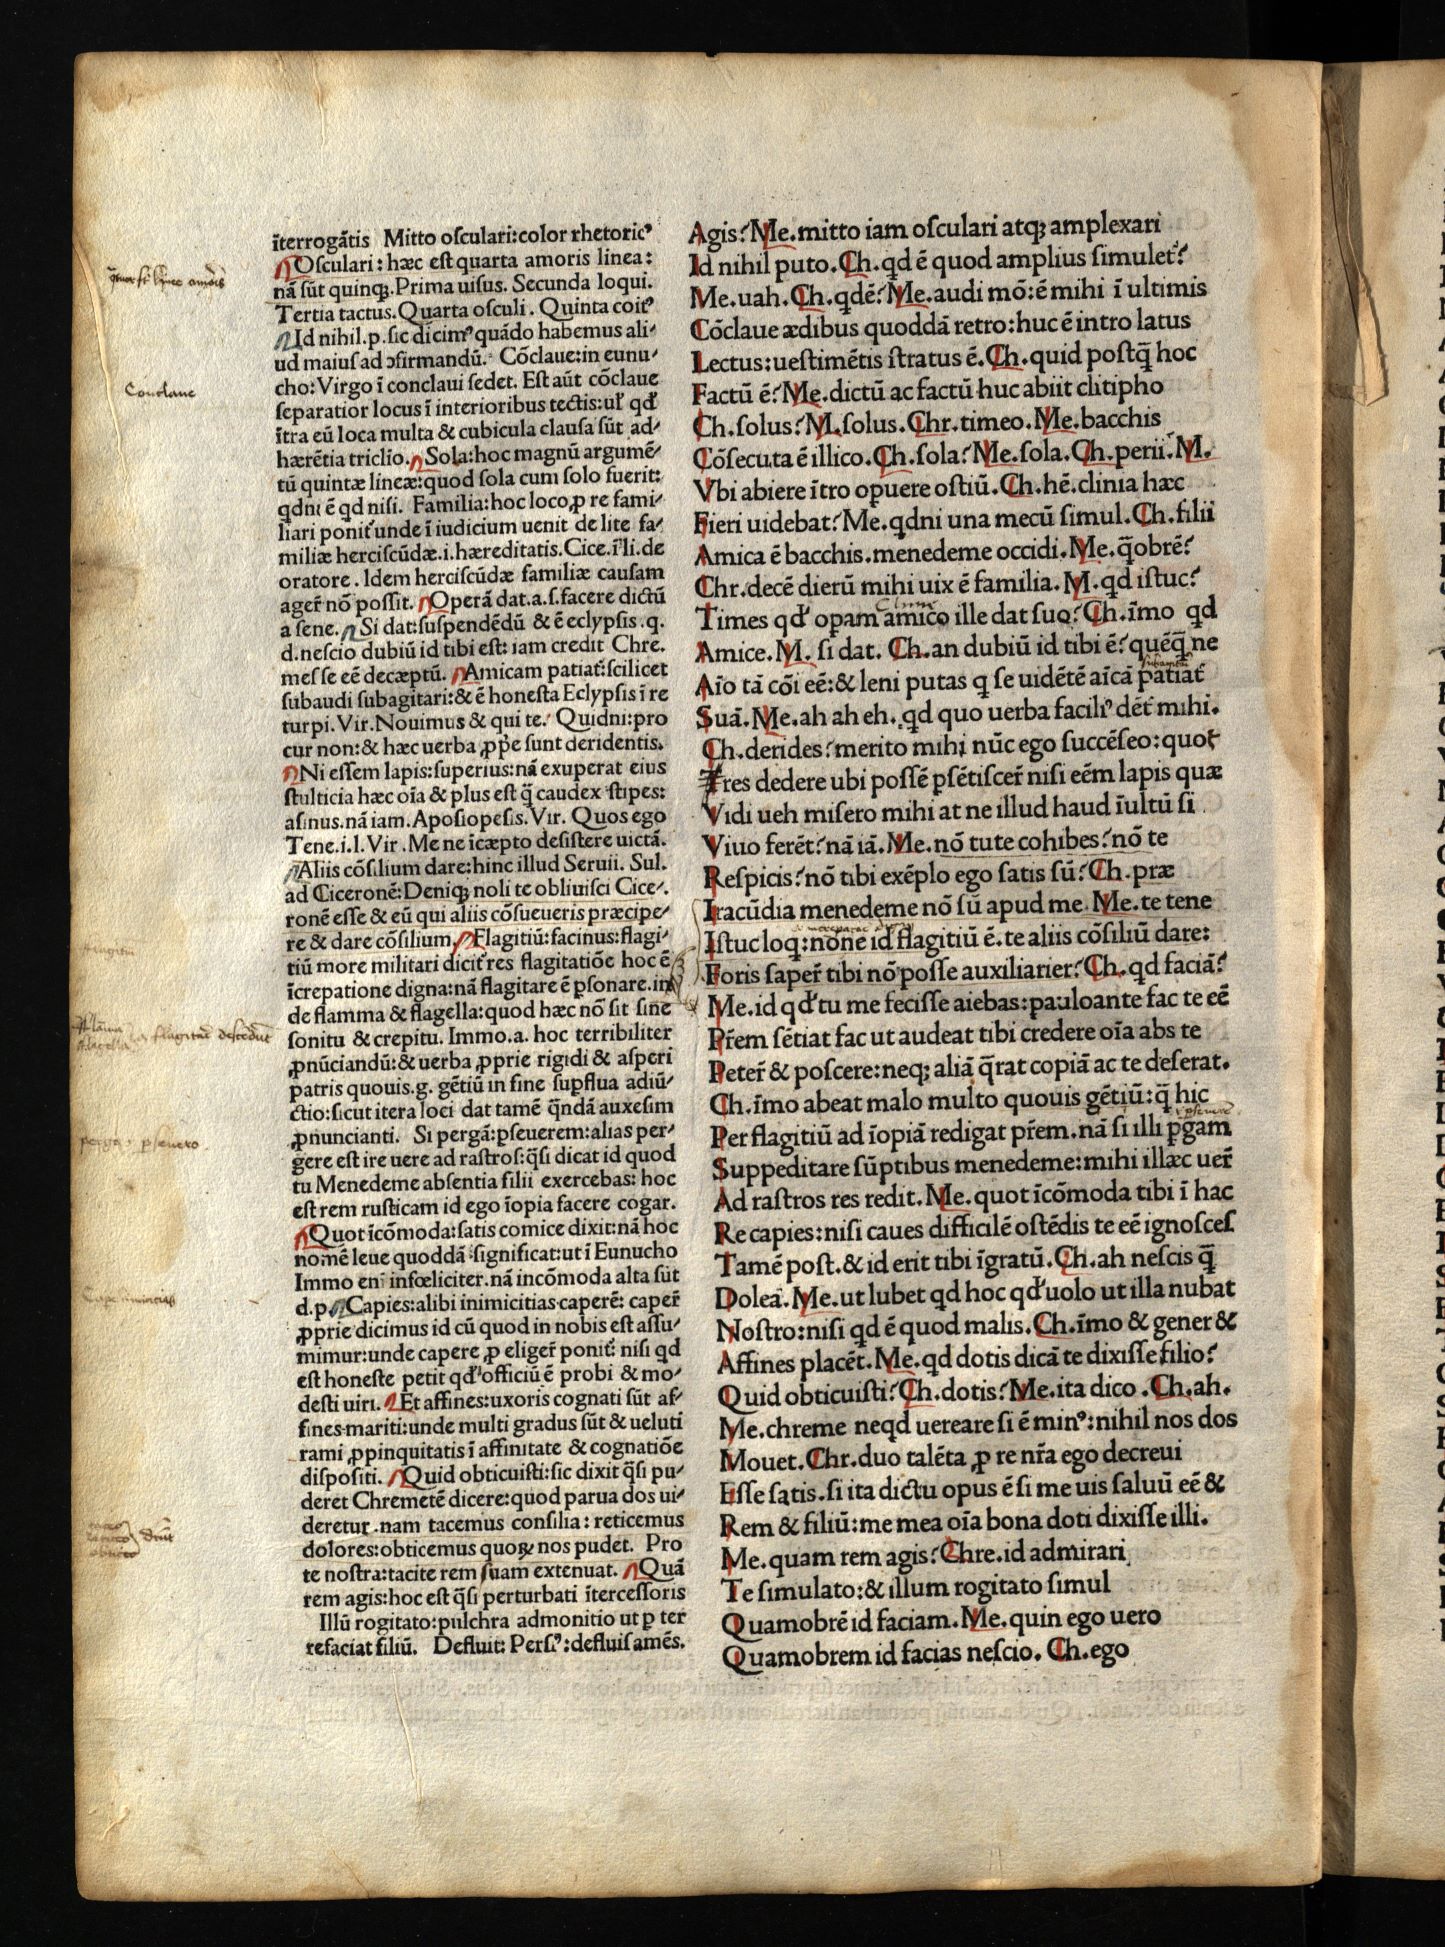 īterrogātis Mitto osculari:color rhetoricꝰ
Osculari: hæc est quarta amoris linea:
nā sūt quinqꝫ. Prima uisus. Secunda loqui.
Tertia tactus. Quarta osculi. Quinta coitꝰ
Id nihil.p.sic dicimꝰ quādo habemus ali-
ud maius ad ↄfirmandū. Cōclaue:in eunu-
cho: Virgo ī conclaui sedet. Est aūt cōclaue
separatior locus ī interioribus tectis:ul̕ qd̕
ītra eū loca multa & cubicula clausa sūt ad-
hærētia triclīo. Sola:hoc magnū argumē-
tū quintæ lineæ:quod sola cum solo fuerit:
qdni ē qd nisi. Familia:hoc loco ꝓ re fami-
liari ponit̃ unde ī iudicium uenit de lite fa-
miliæ herciscūdæ.i.hæreditatis.Cice.ī li.de
oratore. Idem herciscūdæ familiæ causam
ager̃ nō possit. Operā dat.a.s.facere dictū
a sene. Si dat:suspendēdū & ē eclypsis.q.
d.nescio dubiū id tibi est: iam credit Chre.
messe eē decæptū. Amicam patiat̃:scilicet
subaudi subagitari:& ē honesta Eclypsis ī re
turpi. Vir. Nouimus & qui te. Quidni:pro
cur non:& hæc uerba ꝓpe sunt deridentis.
Ni essem lapis:superius:nā exuperat eius
stulticia hæc oīa & plus est q̄ caudex stipes:
asinus.nā iam. Aposiopesis. Vir. Quos ego
Tene.i.l. Vir. Me ne īcæpto desistere uictā.
Aliis cōsilium dare:hinc illud Seruii. Sul.
ad Ciceronē: Deniqꝫ noli te obliuisci Cice-
ronē esse & eū qui aliis cōsueueris præcipe-
re & dare cōsilium. Flagitiū:facinus:flagi-
tiū more militari dicit̃ res flagitatiōe hoc ē
īcrepatione digna:nā flagitare ē ꝑsonare.in
de flamma & flagella:quod hæc nō sit sine
sonitu & crepitu. Immo.a. hoc terribiliter
ꝓnūciandū:& uerba ꝓprie rigidi & asperi
patris quouis.g. gētiū in fine suꝑflua adiū-
ctio:sicut itera loci dat tamē q̄ndā auxesim
ꝓnuncianti. Si pergā:ꝑseuerem:alias per-
gere est ire uere ad rastros:q̄si dicat id quod
tu Menedeme absentia filii exercebas: hoc
est rem rusticam id ego īopia facere cogar.
Quot īcōmoda:satis comice dixit:nā hoc
nomē leue quoddā significat:ut ī Eunucho
Immo eni infœliciter.nā incōmoda alta sūt
d.p. Capies:alibi inimicitias caperē: caper̃
ꝓprie dicimus id cū quod in nobis est assu-
mimur:unde capere ꝓ eliger̃ ponit̃: nisi qd
est honeste petit qd̕ officiū ē probi & mo-
desti uiri. Et affines:uxoris cognati sūt af-
fines mariti:unde multi gradus sūt & ueluti
rami ꝓpinquitatis ī affinitate & cognatiōe
dispositi. Quid obticuisti:sic dixit q̄si pu-
deret Chremetē dicere:quod parua dos ui-
deretur.nam tacemus consilia: reticemus
dolores:obticemus quoꝝ nos pudet. Pro
te nostra:tacite rem suam extenuat. Quā
rem agis:hoc est q̄si perturbati ītercessoris
Illū rogitato:pulchra admonitio ut p ter
refaciat filiū. Defluit: Persꝰ:defluis amēs.
Agis? Me.mitto iam osculari atqꝫ amplexari
Id nihil puto. Ch. qd ē quod amplius simulet?
Me.uah. Ch. qdē? Me.audi mō:ē mihi ī ultimis
Cōclaue ædibus quoddā retro:huc ē intro latus
Lectus:uestimētis stratus ē. Ch. quid postq̄ hoc
Factū ē? Me.dictū ac factū huc abiit clitipho
Ch.solus? M.solus. Chr.timeo. Me.bacchis
Cōsecuta ē illico. Ch.sola? Me.sola. Ch.perii. M.
Vbi abiere ītro oꝑuere ostiū. Ch.hē.clinia hæc
Fieri uidebat? Me.qdni una mecū simul. Ch.filii
Amica ē bacchis.menedeme occidi. Me.q̄obrē?
Chr.decē dierū mihi uix ē familia. M.qd istuc?
Times qd̕ oꝑam amico ille dat suo? Ch.īmo qd
Amice. M. si dat. Ch.an dubiū id tibi ē? quēq̄ ne
Aīo tā cōi eē:& leni putas q se uidētē aīcā patiat̃
Suā. Me.ah ah eh. qd quo uerba faciliꝰ dēt̃ mihi.
Ch.derides? merito mihi nūc ego succēseo:quot
Tres dedere ubi possē ꝑsētiscer̃ nisi eēm lapis quæ
Vidi ueh misero mihi at ne illud haud īultū si
Viuo ferēt? nā iā. Me.nō tute cohibes? nō te
Respicis? nō tibi exēplo ego satis sū? Ch.præ
Iracūdia menedeme nō sū apud me. Me.te tene
Istuc loq:none id flagitiū ē.te aliis cōsiliū dare:
Foris saper̃ tibi nō posse auxiliarier? Ch.qd faciā?
Me.id qd̕ tu me fecisse aiebas:pauloante fac te eē
Pr̄em sētiat fac ut audeat tibi credere oīa abs te
Peter̃ & poscere:neqꝫ aliā q̄rat copiā ac te deserat.
Ch.īmo abeat malo multo quouis gētiū:q̄ hic
Per flagitiū ad īopiā redigat pr̄em.nā si illi ꝑgam
Suppeditare sūptibus menedeme:mihi illæc uer̃
Ad rastros res redit. Me.quot īcōmoda tibi ī hac
Re capies:nisi caues difficilē ostēdis te eē ignosces
Tamē post.& id erit tibi īgratū. Ch.ah nescis q̄
Dolea. Me.ut lubet qd hoc qd̕ uolo ut illa nubat
Nostro:nisi qd ē quod malis. Ch.īmo & gener &
Affines placēt. Me.qd dotis dicā te dixisse filio?
Quid obticuisti? Ch.dotis? Me.ita dico. Ch.ah.
Me.chreme neqd uereare si ē minꝰ:nihil nos dos
Mouet. Chr.duo talēta ꝓ re nr̄a ego decreui
Esse satis.si ita dictu opus ē si me uis saluū eē &
Rem & filiū:me mea oīa bona doti dixisse illi.
Me.quam rem agis? Chre.id admirari
Te simulato:& illum rogitato simul
Quamobrē id faciam. Me.quin ego uero
Quamobrem id facias nescio. Ch.ego
Conclaue